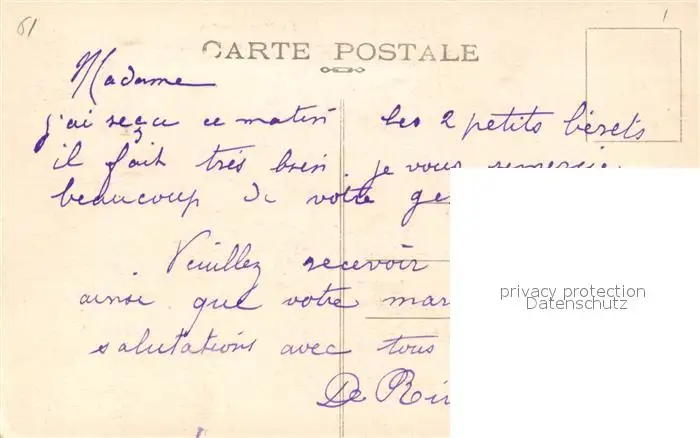 61
1
CARTE POSTALE
Madame
j'ai reçu ce matin les 2 petits bérets
il fait très bien. je vous remercie
beaucoup de votre
Veuillez recevoir
ainsi que votre mar
salutations avec tous
privacy protection
Datenschutz